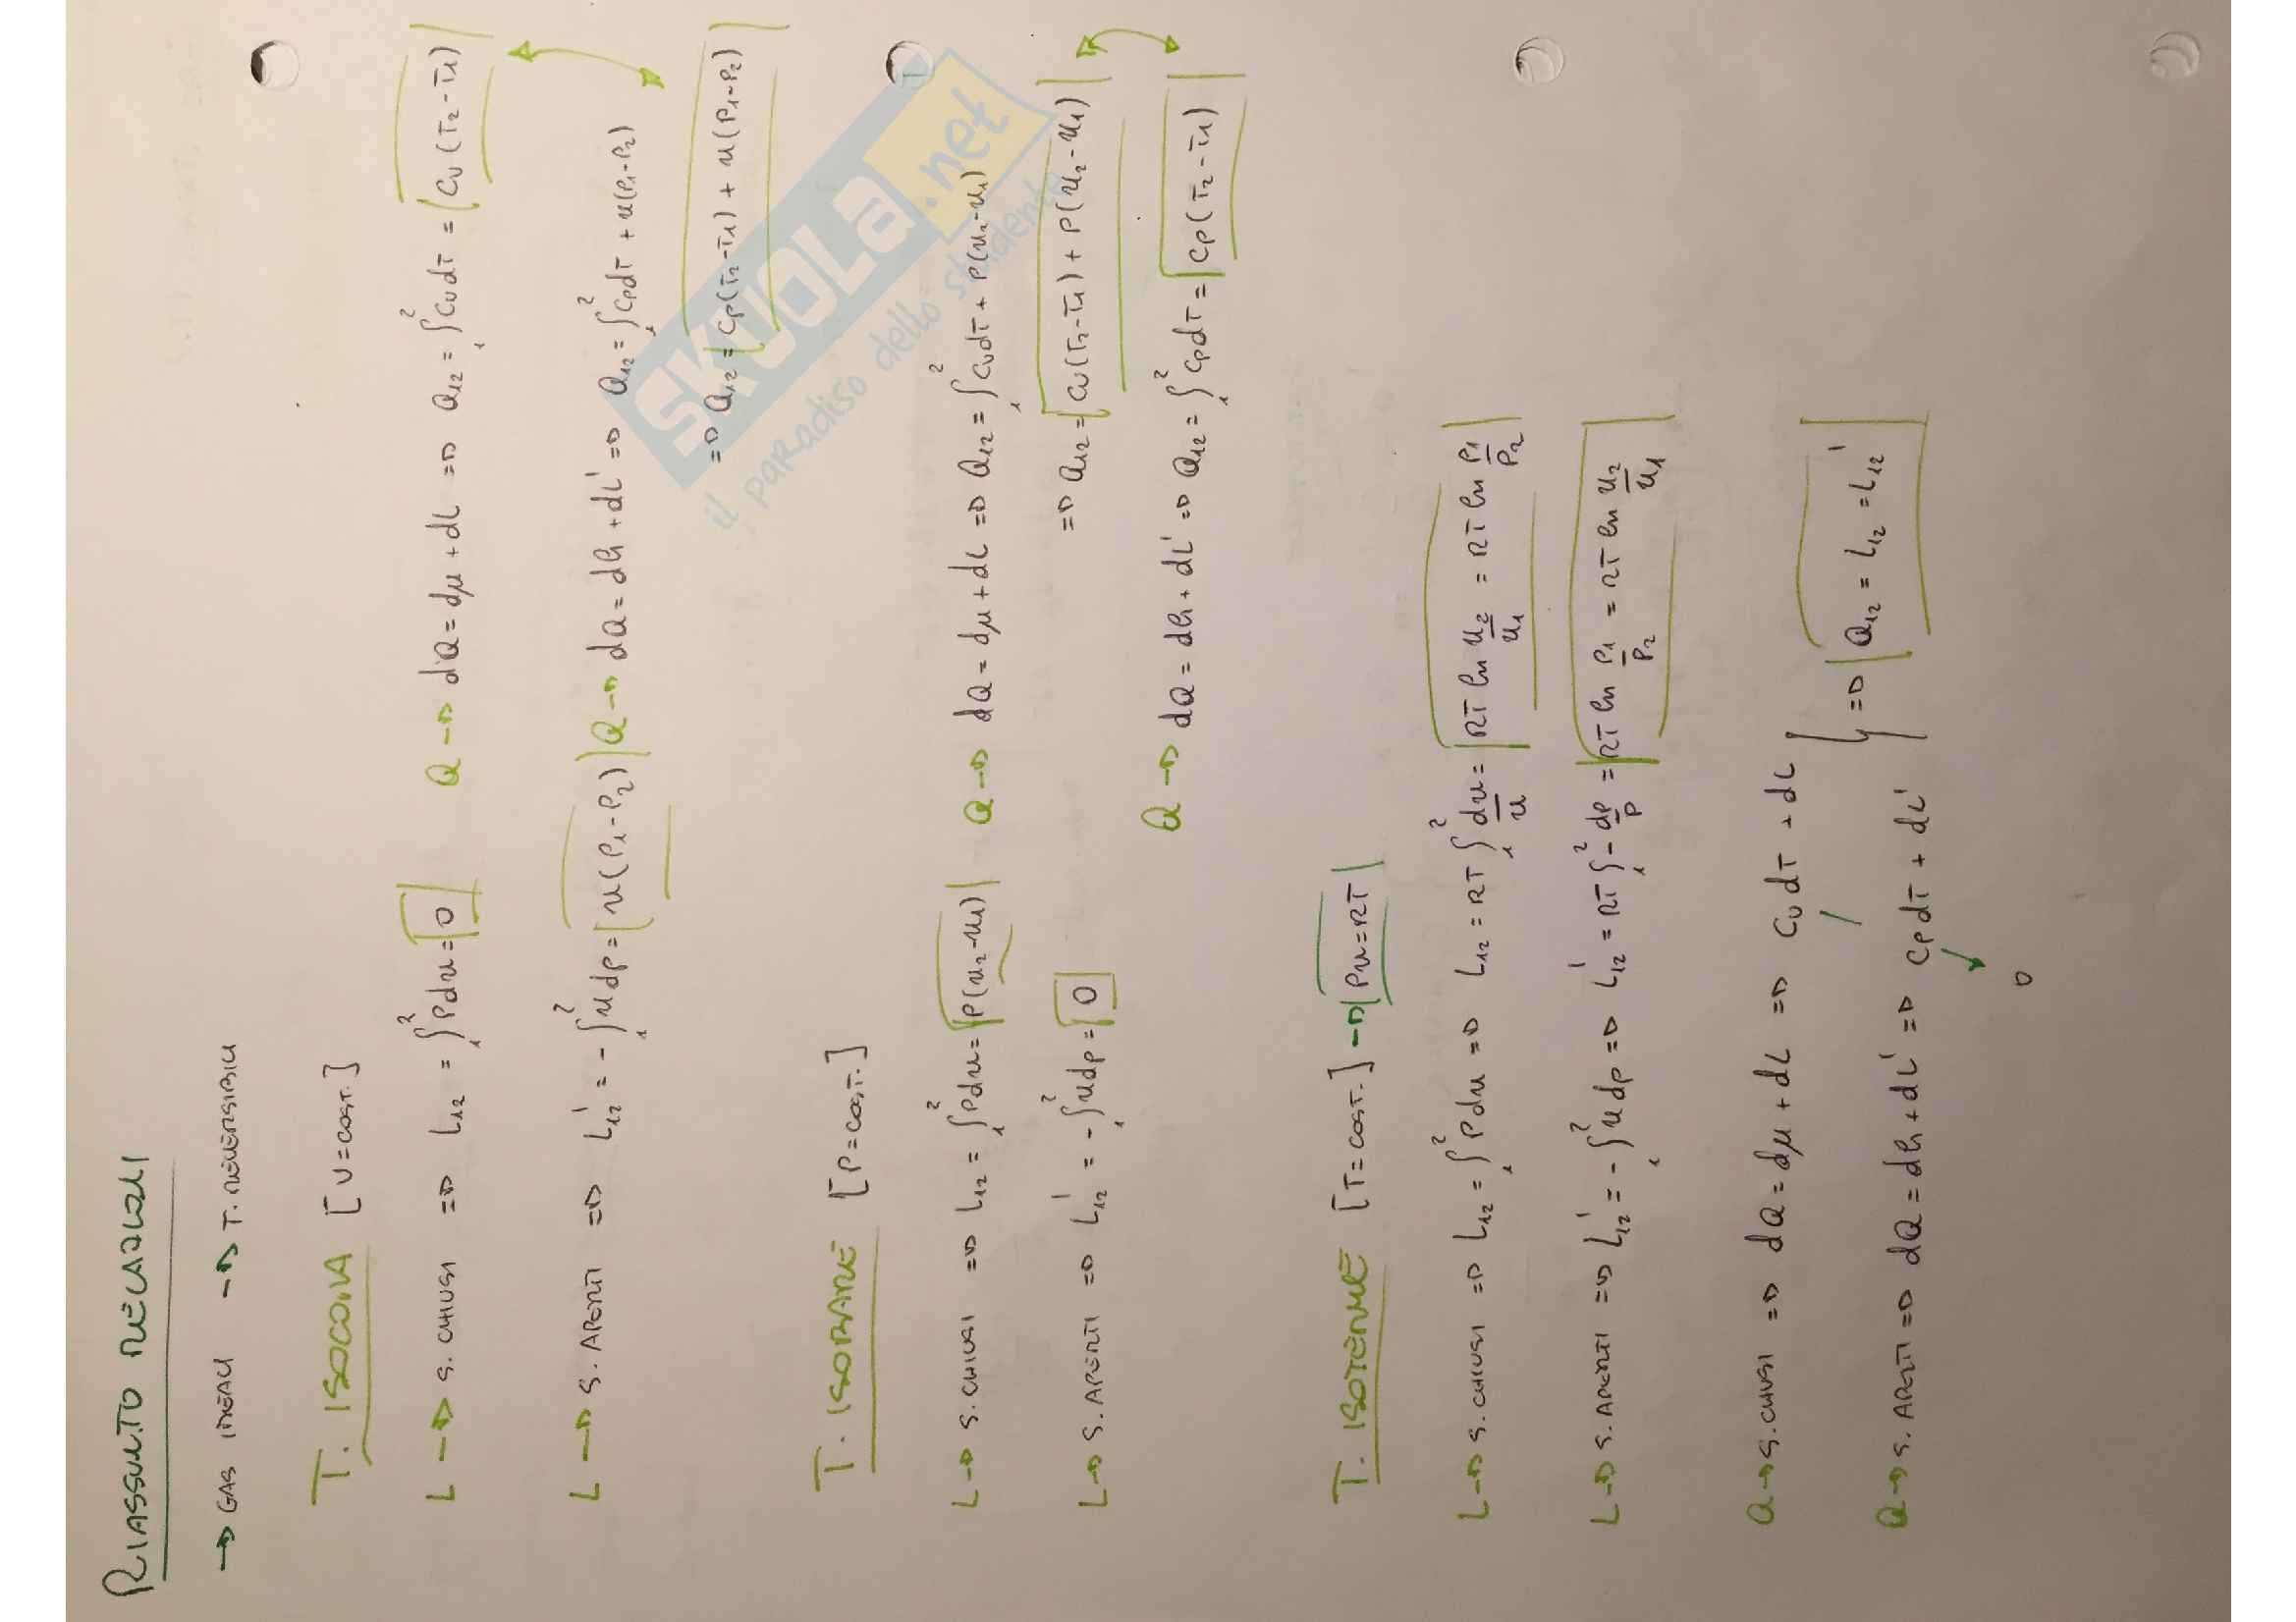 RIASSUNTO RELAZIONI
→ GAS IDEALI → T. REVERSIBILI
T. ISOCORA [v=cost.]
L → S. CHIUSI ⇒ L₁₂ = ∫₁² Pdv = 0 Q → dQ = dμ + dL ⇒ Q₁₂ = ∫₁² cv dT = cv (T₂-T₁)
L → S. APERTI ⇒ L'₁₂ = -∫₁² v dp = v(P₁-P₂) Q → dQ = dh + dL' ⇒ Q₁₂ = ∫₁² cp dT + v(P₁-P₂)
⇒ Q₁₂ = cp(T₂-T₁) + v(P₁-P₂)
T. ISOBARE [P=cost.]
L → S. CHIUSI ⇒ L₁₂ = ∫₁² Pdv = P(v₂-v₁) Q → dQ = dμ + dL ⇒ Q₁₂ = ∫₁² cv dT + P(v₂-v₁)
⇒ Q₁₂ = cv(T₂-T₁) + P(v₂-v₁)
L → S. APERTI ⇒ L'₁₂ = -∫₁² vdp = 0
Q → dQ = dh + dL' ⇒ Q₁₂ = ∫₁² cp dT = cp(T₂-T₁)
T. ISOTERME [T=cost.] → Pv=RT
L → S. CHIUSI ⇒ L₁₂ = ∫₁² Pdv ⇒ L₁₂ = RT ∫₁² dv/v = RT ln v₂/v₁ = RT ln P₁/P₂
L → S. APERTI ⇒ L'₁₂ = -∫₁² v dp ⇒ L'₁₂ = RT ∫₁² -dp/P = RT ln P₁/P₂ = RT ln v₂/v₁
Q → S. CHIUSI ⇒ dQ = dμ + dL ⇒ cv dT + dL
⇒ Q₁₂ = L₁₂ = L'₁₂
Q → S. APERTI ⇒ dQ = dh + dL' ⇒ cp dT + dL'
0
SKUOLA.net
il paradiso dello studente